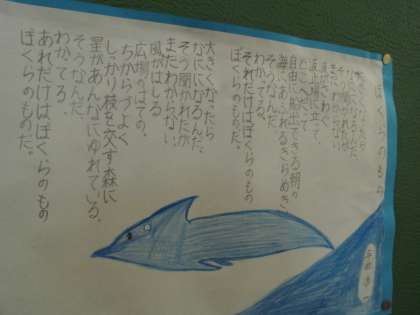 ぼくらのもの
自由に船出できる朝の
海にあふれるきらめき、
そうなんだ
わかてる、
それだけはぼくらのもの
ぼくらのものだ。
大きくなったら
なにになるんだ、
そう聞かれたが
まだわからない
風がはしる
広場のはての、
ちからづよく
しっかり枝を交す森に
星があんなにゆれている、
そうなんだ、
わかてる、
あれだけはぼくらのもの
ぼくらのものだ。